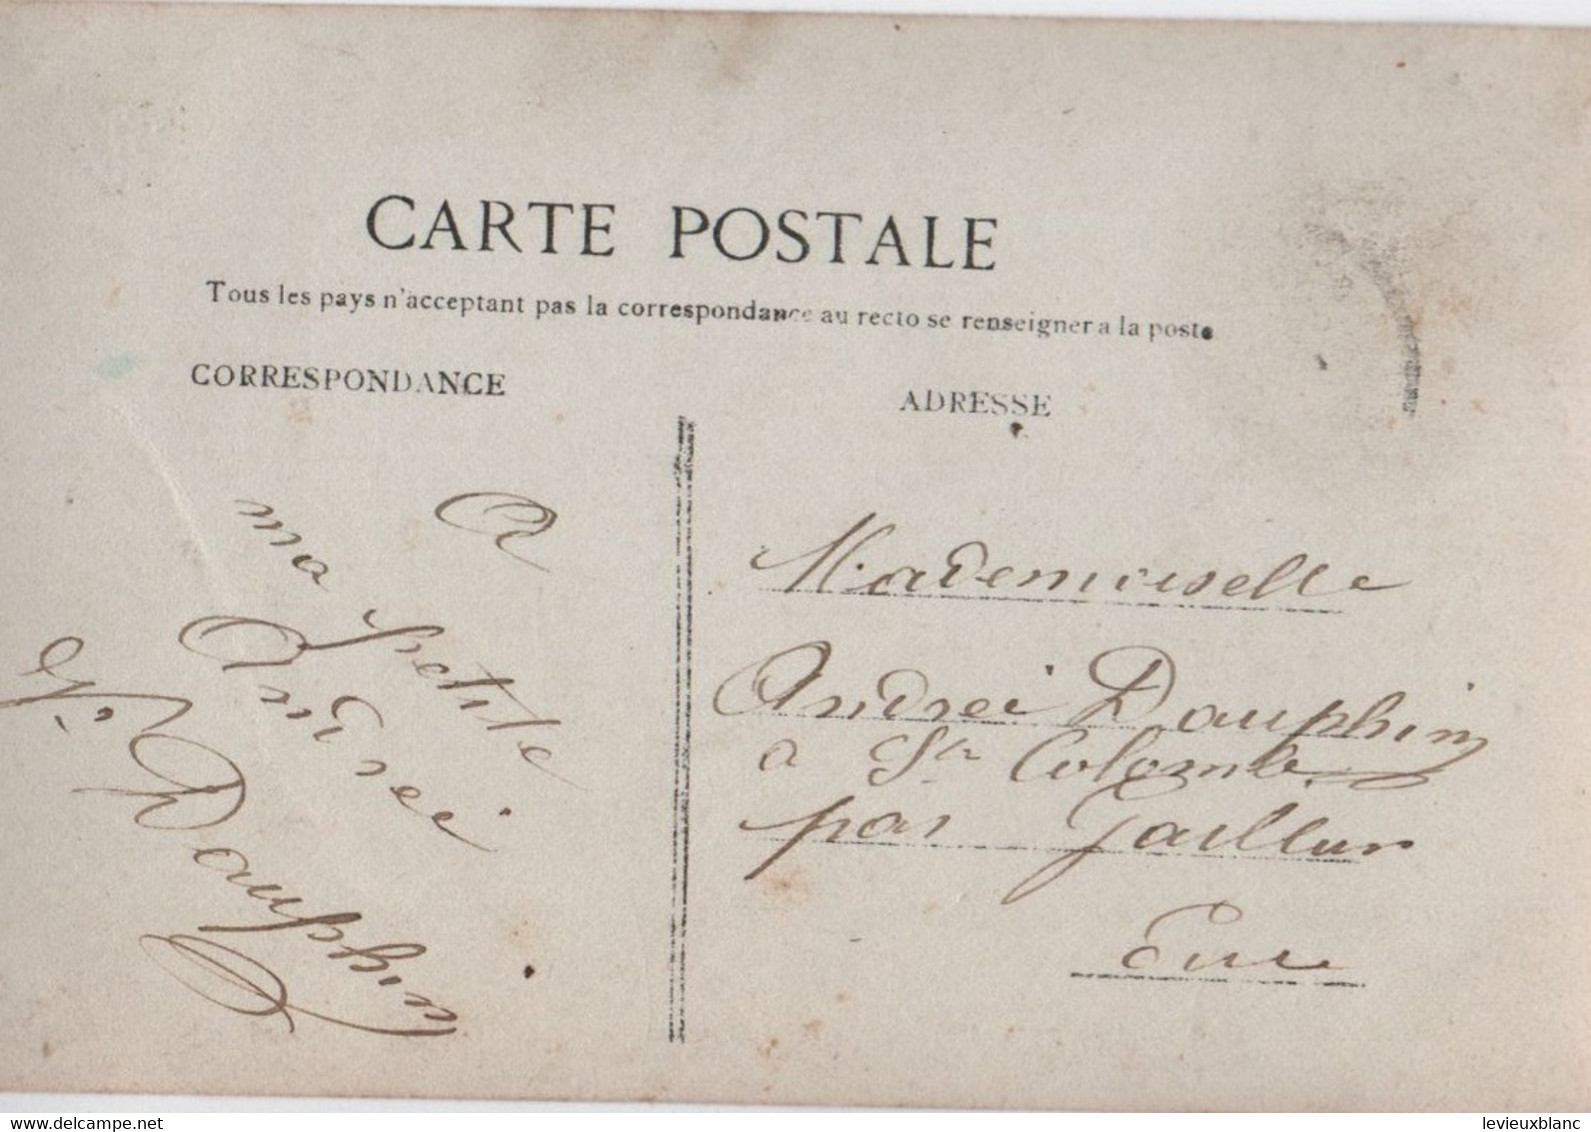 CARTE POSTALE
Tous les pays n'acceptant pas la correspondance au recto se renseigner a la poste
CORRESPONDANCE
ADRESSE
A
ma petite
Andrei
Dauphin
Mademoiselle
Andrei Dauphin
a Ste Colombe
par Gaillon
Eure
levieuxblanc